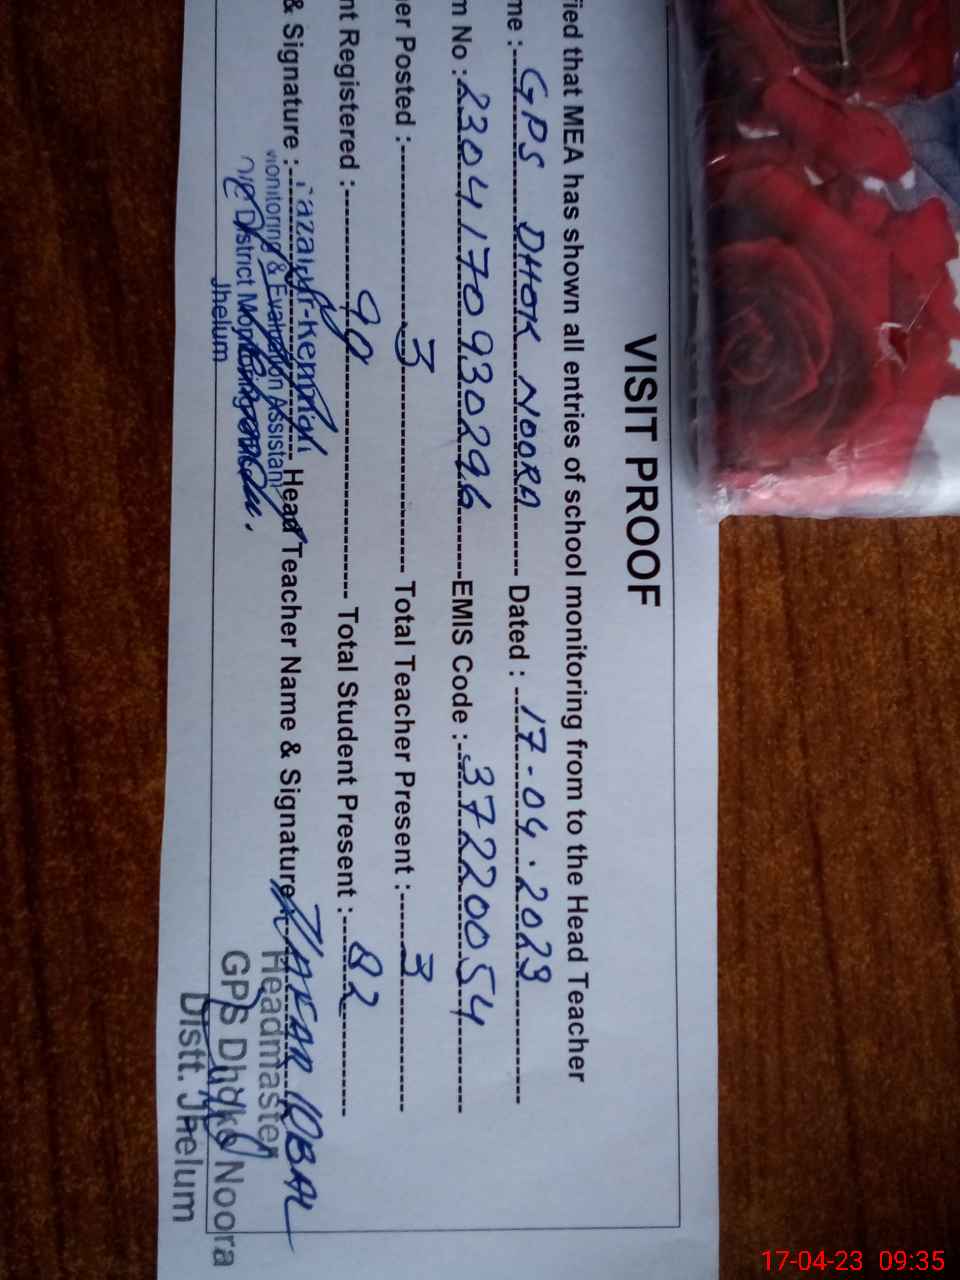 VISIT PROOF
fied that MEA has shown all entries of school monitoring from to the Head Teacher
me :- GPS DHOK NOORA Dated : 17-04-2023
m No : 2304170930296 EMIS Code :- 37220054
er Posted :- 3 Total Teacher Present :- 3
nt Registered :- 99 Total Student Present :- 82
& Signature :- Head Teacher Name & Signature IQBAL
Monitoring & Evaluation Assistant
District Monitoring
Jhelum
Headmaster
GPS Dhoke Noora
Distt. Jhelum
17-04-23 09:35